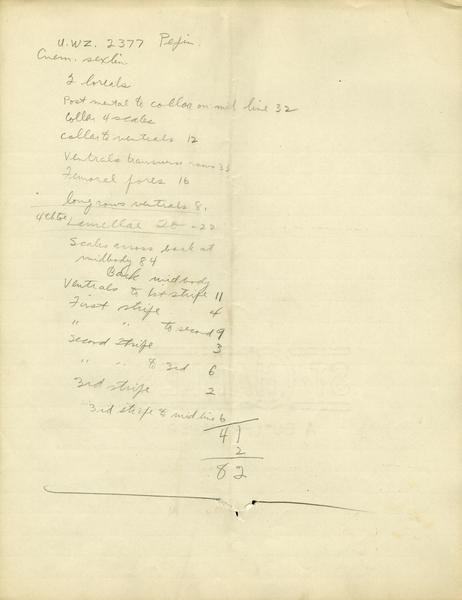 U.W.Z. 2377 Pepin.
Cnem. sexlin
2 loreals
Post mental to collar on mid line 32
Collar 4 scales
Collar to ventrals 12
Ventrals transverse rows 33
Femoral pores 16
long rows ventrals 8.
4th toe Lamellae 20-22
Scales across back at
midbody 84
Back midbody
Ventrals to 1st stripe 11
First stripe 4
" " to second 9
Second stripe 3
" " to 3rd 6
3rd stripe 2
3rd stripe to mid line 6
41
2
82